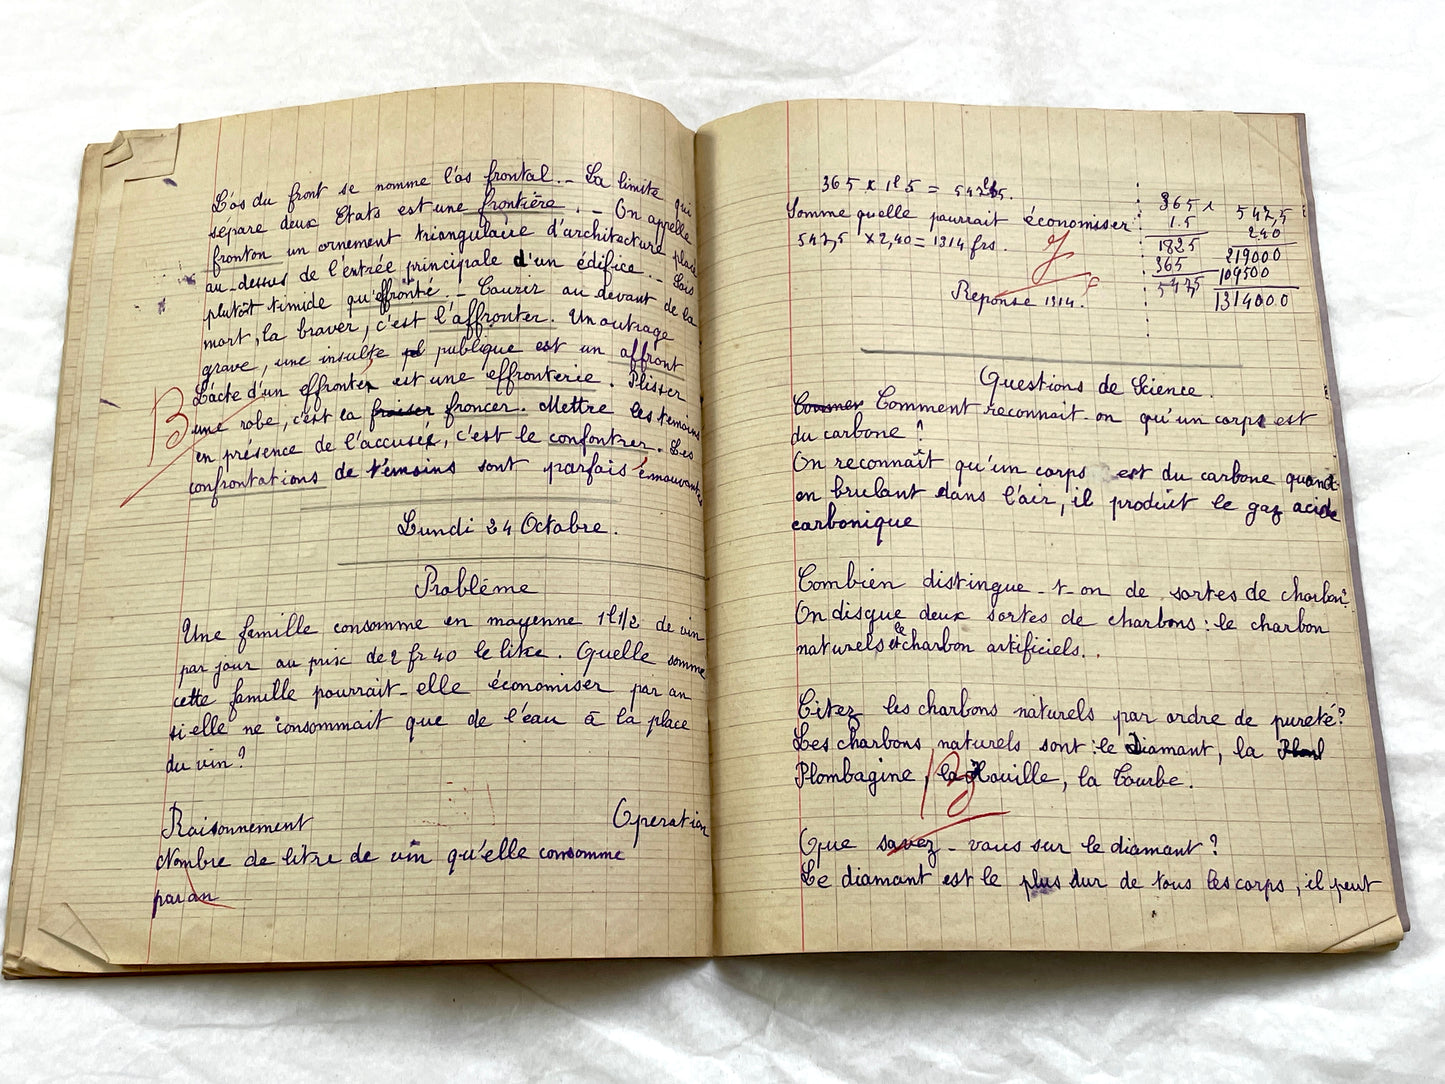 L'os du front se nomme l'os frontal. _ La limite qui
sépare deux Etats est une frontière. _ On appelle
fronton un ornement triangulaire d'architecture placé
au-dessus de l'entrée principale d'un édifice. _ Sois
plutôt timide qu'effronté. _ Courir au devant de la
mort, la braver, c'est l'affronter. Un outrage
grave, une insulte publique est un affront
L'acte d'un effronté est une effronterie. Plisser
une robe, c'est la froiser froncer. Mettre les témoins
en présence de l'accusé, c'est le confontrer. Les
confrontations de témoins sont parfois émouvantes
B
Lundi 24 Octobre.
Problème
Une famille consomme en moyenne 1l1/2 de vin
par jour au prix de 2 fr 40 le litre. Quelle somme
cette famille pourrait-elle économiser par an
si elle ne consommait que de l'eau à la place
du vin ?
Raisonnement Operation
Nombre de litre de vin qu'elle consomme
par an
365 x 1l5 = 547l5.
Somme quelle pourrait économiser
547,5 x 2,40 = 1314 frs.
Reponse 1314.
365 x
1.5
1825
365
547,5
547,5
240
219000
109500
1314000
Questions de Science.
Comment reconnait-on qu'un corps est
du carbone ?
On reconnaît qu'un corps est du carbone quand
en brulant dans l'air, il produit le gaz acide
carbonique
Combien distingue-t-on de sortes de charbon?
On disgue deux sortes de charbons : le charbon
naturels et le charbon artificiels..
Citez les charbons naturels par ordre de pureté?
Les charbons naturels sont : le Diamant, la
Plombagine, la Houille, la Tourbe.
B
Que savez-vous sur le diamant ?
Le diamant est le plus dur de tous les corps, il peut